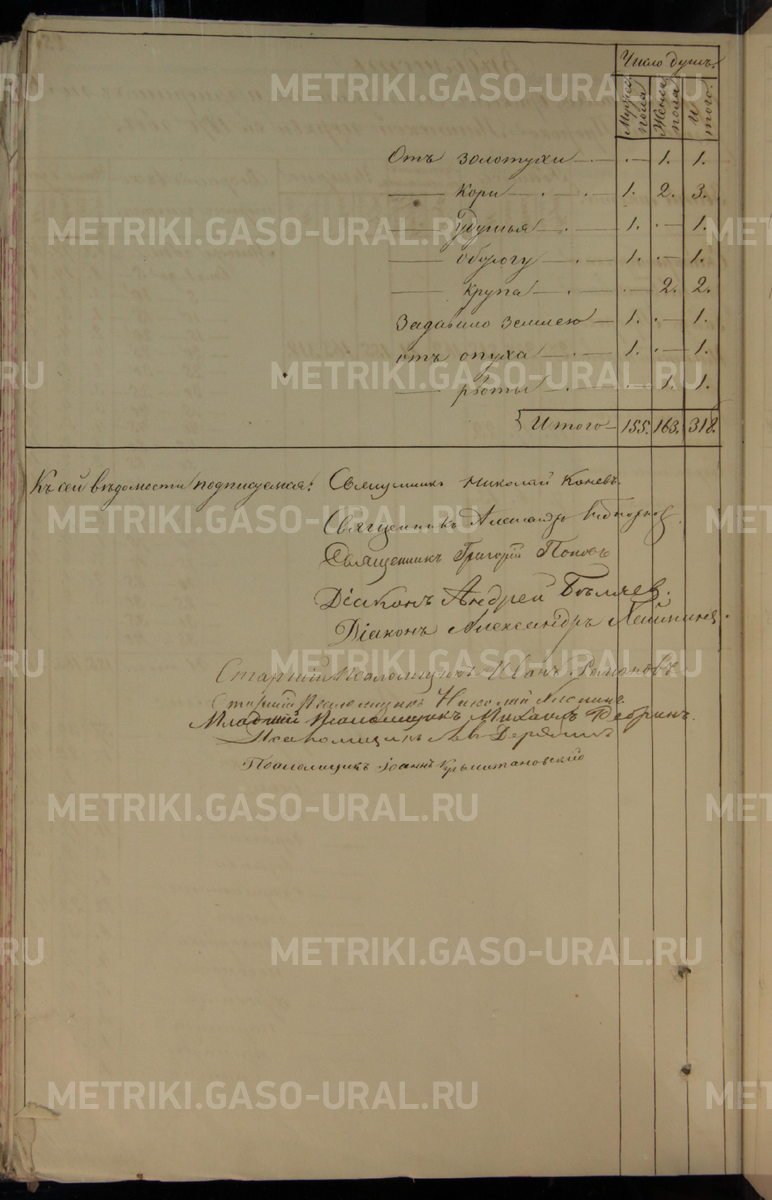 Число душъ.
Мужска пола
Женска пола
И того.
Отъ золотухи — . — . — 1. 1.
— Кори — . — . — 1. 2. 3.
— Удушья — . — 1. . — 1.
— . — 1. . — 1.
— Крупа — . — . — 2. 2.
Задавило землею — 1. . — 1.
отъ опуха — . — 1. . — 1.
— рвоты — . — . — 1. 1.
Итого — 155. 163. 318.
Къ сей вѣдомости Священникъ Николай Коневъ.
Священникъ Александръ
Священникъ Григорій Поповъ
Діаконъ Андрей Бѣляев.
Діаконъ Александръ
Старшій Псаломщикъ Иванъ Романовъ
Старшій Псаломщикъ Николай
Младшій Псаломщикъ Михаилъ
Псаломщикъ Левъ Дерябинъ
Псаломщикъ Іоаннъ
METRIKI.GASO-URAL.RU